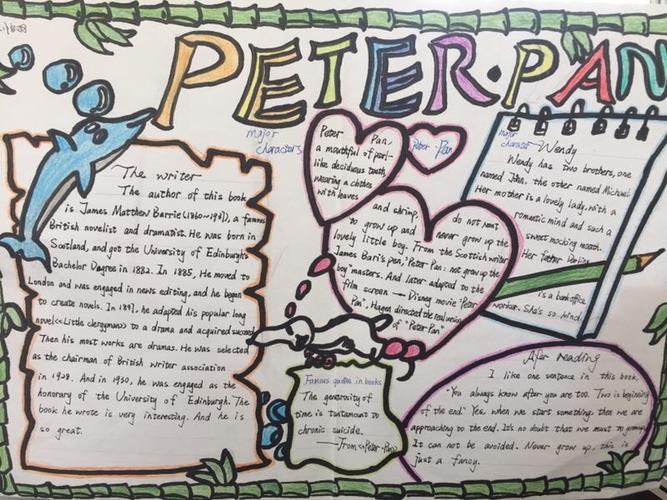 PETER·PAN
major
characters
The writer
The author of this book
is James Matthew Barrie(1860~1937), a famous
British novelist and dramatist. He was born in
Scotland, and got the University of Edinburgh
Bachelor Degree in 1882. In 1885, He moved to
London and was engaged in news editing, and he began
to create novels. In 1891, he adapted his popular long
novel<<Little clergyman>> to a drama and acquired succeed
Then his most works are dramas. He was selected
as the chairman of British writer association
in 1928. And in 1930, he was engaged as the
honorary of the University of Edinburgh. The
book he wrote is very interesting. And he is
so great.
Peter Pan,
a mouthful of pearl-
like deciduous teeth,
wearing a clothes
with leaves
Peter·Pan
and shrimp, do not want
to grow up and never grow up the
lovely little boy. From the Scottish writer
James Bari's pen, "Peter Pan: not grow up the
boy" masters. And later adapted to the
film screen — Disney movie "Peter
Pan", Hagen directed the real version
of "Peter Pan"
major
character
Wendy
Wendy has two brothers, one
named John, the other named Michael
Her mother is a lovely lady, with a
romantic mind and such a
sweet mocking mouth.
Her father Darling
is a bank office
worker. She's so kind.
Famous quotes in books
The generosity of
time is tantamount to
chronic suicide.
—From <<Peter·Pan>>
After reading
I like one sentence in this book.
"You always know after you are too. Two is beginning
of the end." Yes, when we start something, then we are
approaching to the end. It's no doubt that we must to grow up
It can not be avoided. Never grow up, this is
just a fancy.